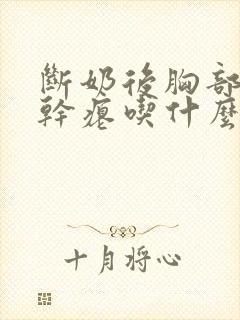 斷奶後胸部
幹癟喫什麼
十月将心